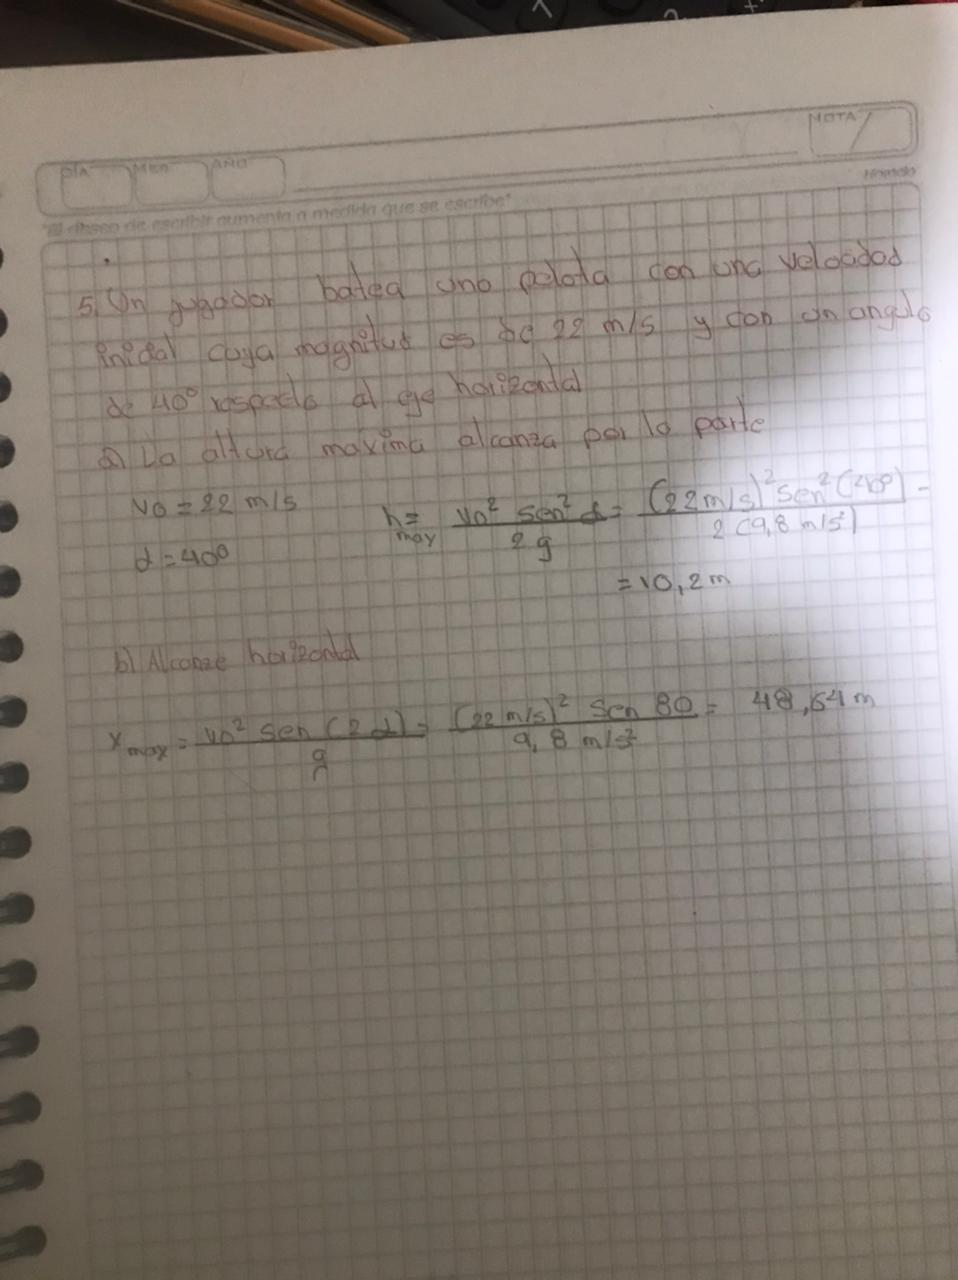 NOTA
DÍA MES AÑO
"El deseo de escribir aumenta a medida que se escribe"
5. Un jugador batea una pelota con una velocidad
inicial cuya magnitud es de 22 m/s y con un angulo
de 40° respecto al eje horizontal
a) La altura maxima alcanza por la parte
v0 = 22 m/s
α = 40°
h max = v0² sen² α / 2g = (22 m/s)² sen² (40°) / 2 (9,8 m/s²) -
= 10,2 m
b) Alcance horizontal
x max = v0² sen (2 α) / g = (22 m/s)² sen 80 / 9,8 m/s² = 48,64 m